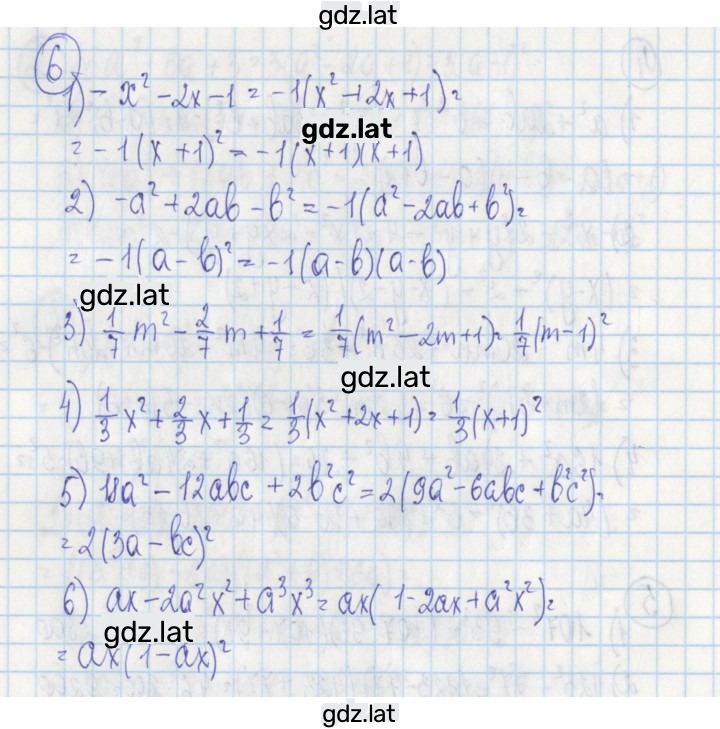 gdz.lat
6
1) - x² - 2x - 1 = -1(x² + 2x + 1) =
gdz.lat
= -1(x + 1)² = -1(x + 1)(x + 1)
2) -a² + 2ab - b² = -1(a² - 2ab + b²) =
= -1(a - b)² = -1(a - b)(a - b)
gdz.lat
3) 1/7 m² - 2/7 m + 1/7 = 1/7(m² - 2m + 1) = 1/7(m - 1)²
gdz.lat
4) 1/3 x² + 2/3 x + 1/3 = 1/3(x² + 2x + 1) = 1/3(x + 1)²
5) 18a² - 12abc + 2b²c² = 2(9a² - 6abc + b²c²) =
= 2(3a - bc)²
6) ax - 2a²x² + a³x³ = ax(1 - 2ax + a²x²) =
gdz.lat
= ax(1 - ax)²
gdz.lat